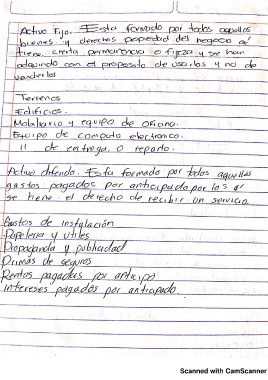 Activo Fijo. Esta formado por todos aquellos
bienes y derechos propiedad del negocio q'
tiene cierta permanencia o fijeza y se han
adquirido con el proposito de usarlos y no de
venderlos
Terrenos
Edificios.
Mobiliario y equipo de oficina.
Equipo de computo electronico.
11 de entrega o reparto.
Activo diferido. Esta formado por todos aquellos
gastos pagados por anticipado por los q'
se tiene el derecho de recibir un servicio
Gastos de instalación
Papeleria y utiles
Propaganda y publicidad
Primas de seguros
Rentas pagadas por anticipo
Intereses pagados por anticipado
Scanned with CamScanner